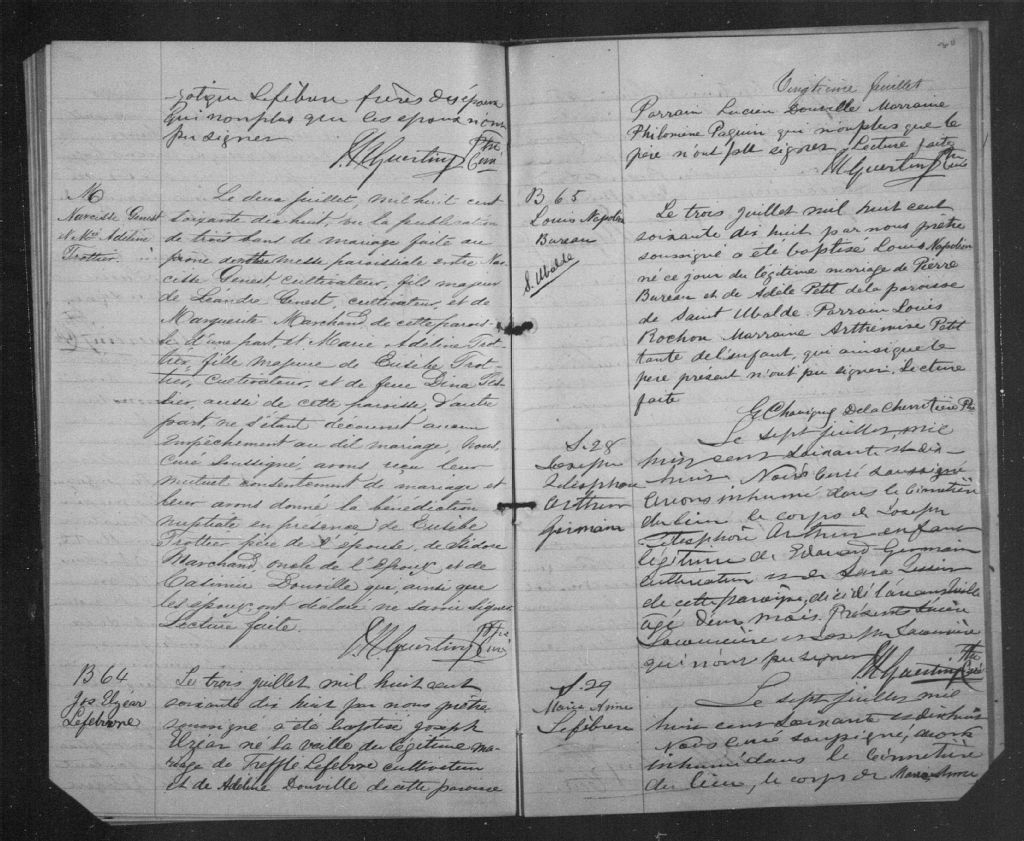 Lefebvre frères des époux
qui non plus que les époux n'ont
pu signer
Ptre
Guertin
Curé
M
Narcisse Genest
&
Adeline
Trottier
Le deux juillet, mil huit cent
soixante dix huit vu la publication
de trois bans de mariage faite au
prone de notre messe paroissiale entre Nar-
cisse Genest, cultivateur, fils majeur
de Léandre Genest, cultivateur, et de
Marguerite Marchand, de cette parois-
se d'une part, et Marie Adeline Trot-
tier, fille majeure de Eusèbe Trot-
tier, cultivateur, et de feue Dina
aussi de cette paroisse, d'autre
part, ne s'étant découvert aucun
empêchement au dit mariage, Nous,
curé soussigné, avons reçu leur
mutuel consentement de mariage et
leur avons donné la bénédiction
nuptiale en présence de Eusèbe
Trottier père de l'épouse, de Isidore
Marchand, oncle de l'époux et de
Casimir Douville qui, ainsi que
les époux, ont déclaré ne savoir signer.
Lecture faite.
Ptre
Guertin
Curé
B 64
Jos Elzéar
Lefebvre
Le trois juillet mil huit cent
soixante dix huit par nous prêtre
soussigné a été baptisé Joseph
Elzéar né la veille du légitime ma-
riage de Treffle Lefebvre cultivateur
et de Adéline Douville de cette paroisse
Vingtième feuillet
Parrain Lucien Douville Marraine
Philomène Paquin qui non plus que le
père n'ont pu signer. Lecture faite
Guertin Ptre
Curé
B 65
Louis Napoléon
Bureau
S. Ubalde
Le trois juillet mil huit cent
soixante dix huit par nous prêtre
soussigné a été baptisé Louis Napoléon
né ce jour du légitime mariage de Pierre
Bureau et de Adèle Petit de la paroisse
de Saint Ubalde. Parrain Louis
Rochon Marraine Arthemise Petit
tante de l'enfant, qui ainsi que le
père présent n'ont pu signer. Lecture
faite
Chavigny De la Chevrotière Ptre
S. 28
Joseph
Télesphore
Arthur
Germain
Le sept juillet, mil
huit cent soixante et dix-
huit, Nous Curé soussigné
avons inhumé dans le Cimetière
du lieu, le corps de Joseph
Télesphore Arthur, enfant
légitime de Edouard Germain
cultivateur et de Sara
de cette paroisse, décédé l'avant veille
agé d'un mois. Présents
qui n'ont pu signer
Guertin Ptre
Curé
S. 29
Marie Anne
Lefebvre
Le sept juillet mil
huit cent soixante et dix huit
Nous Curé soussigné, avons
inhumé dans le Cimetière
du lieu, le corps de Marie Anne